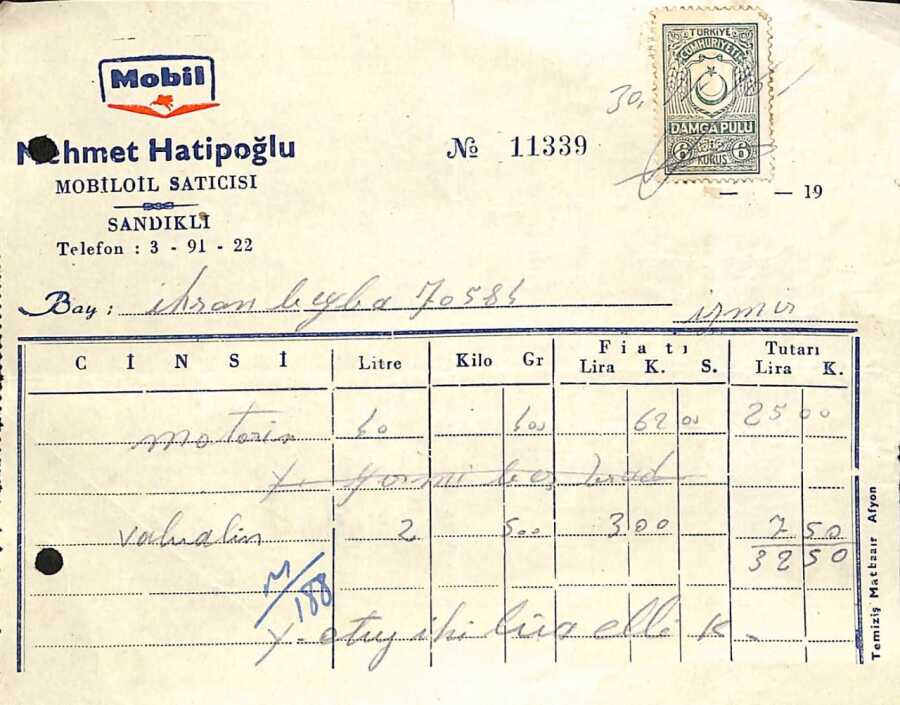 Mobil
Mehmet Hatipoğlu
MOBİLOİL SATICISI
SANDIKLI
Telefon : 3 - 91 - 22
№ 11339
TÜRKİYE
CUMHURİYETİ
DAMGA PULU
6 KURUŞ 6
30.
- - 19
Bay : ihsan
izmir
CİNSİ Litre Kilo Gr Fiatı Lira K. S. Tutarı Lira K.
motorin 40 62 00 25 00
Y. yirmi beş liradır
2 500 3 00 7 50
32 50
M/188
Y. otuz iki lira elli K.
Temiziş Matbaaır Afyon